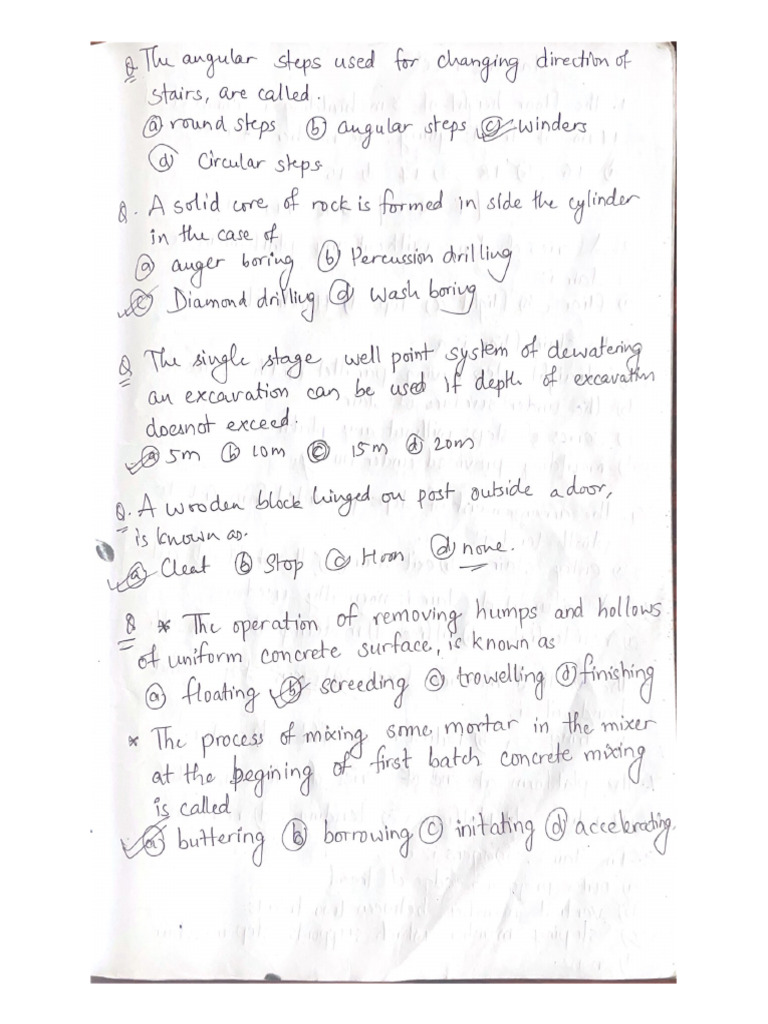 Q The angular steps used for changing direction of
stairs, are called.
(a) round steps (b) angular steps (c) winders
(d) Circular steps
Q. A solid core of rock is formed in side the cylinder
in the case of
(a) auger boring (b) Percussion drilling
(c) Diamond drilling (d) wash boring
Q The single stage well point system of dewatering
an excavation can be used if depth of excavation
doesnot exceed.
(a) 5m (b) 10m (c) 15m (d) 20m
Q. A wooden block hinged on post outside a door,
is known as.
(a) Cleat (b) Stop (c) Horn (d) none.
Q * The operation of removing humps and hollows
of uniform concrete surface, is known as
(a) floating (b) screeding (c) trowelling (d) finishing
* The process of mixing some mortar in the mixer
at the begining of first batch concrete mixing
is called
(a) buttering (b) borrowing (c) initating (d) accelerating.